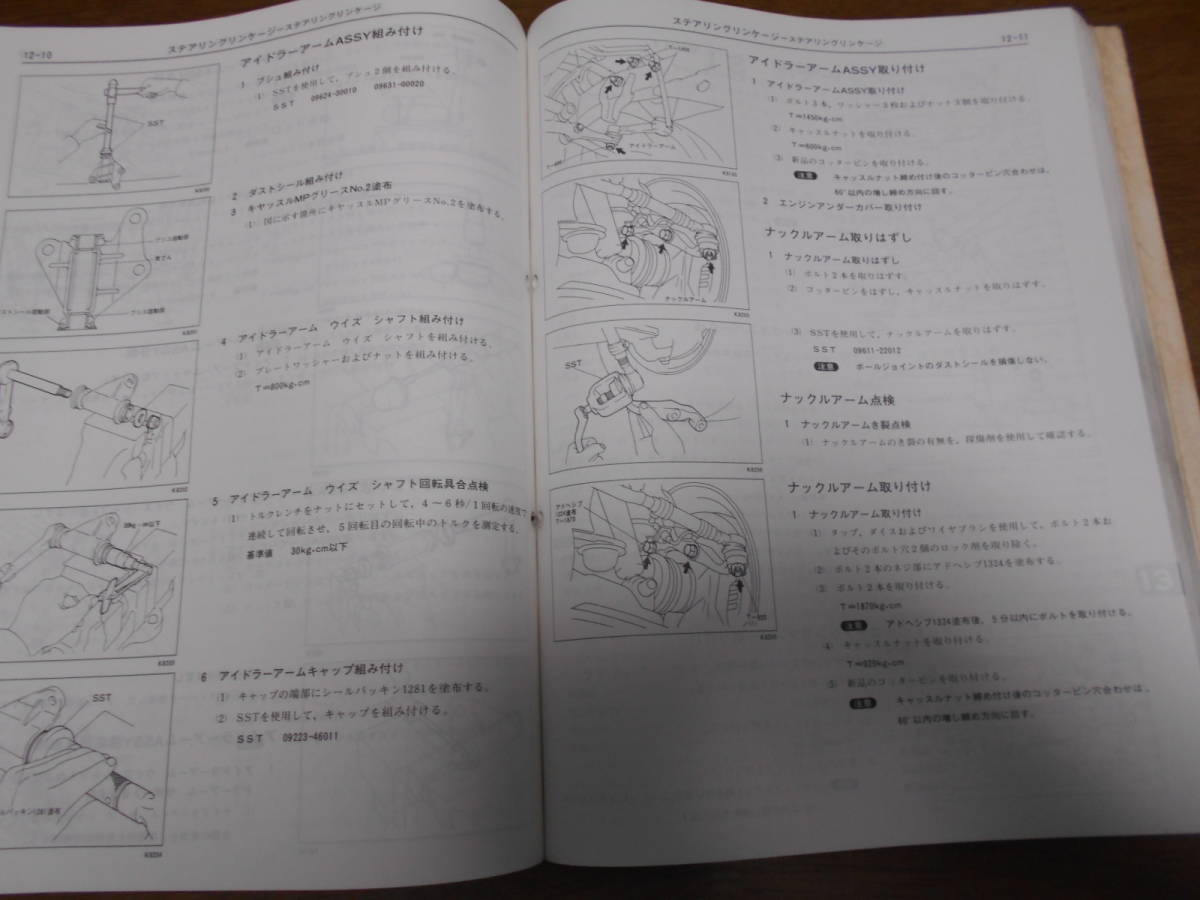 12-10
ステアリングリンケージーステアリングリンケージ
アイドラーアームASSY組み付け
1 ブシュ組み付け
(1) SSTを使用して，ブシュ2個を組み付ける。
SST 09624-30010 09631-00020
SST
2 ダストシール組み付け
3 キャッスルMPグリースNo.2塗布
(1) 図に示す箇所にキャッスルMPグリースNo.2を塗布する。
4 アイドラーアーム ウイズ シャフト組み付け
(1) アイドラーアーム ウイズ シャフトを組み付ける。
(2) プレートワッシャーおよびナットを組み付ける。
T=800kg-cm
5 アイドラーアーム ウイズ シャフト回転具合点検
(1) トルクレンチをナットにセットして，4～6秒/1回転の速度で
連続して回転させ，5回転目の回転中のトルクを測定する。
基準値 30kg-cm以下
6 アイドラーアームキャップ組み付け
(1) キャップの端部にシールパッキン1281を塗布する。
(2) SSTを使用して，キャップを組み付ける。
SST 09223-46011
SST
ステアリングリンケージーステアリングリンケージ
12-11
アイドラーアームASSY取り付け
1 アイドラーアームASSY取り付け
(1) ボルト3本，ワッシャー3枚およびナット3個を取り付ける。
T=1450kg-cm
(2) キャッスルナットを取り付ける。
T=600kg-cm
(3) 新品のコッターピンを取り付ける。
注意 キャッスルナット締め付け後のコッターピン穴合わせは，
60°以内の増し締め方向に回す。
2 エンジンアンダーカバー取り付け
アイドラーアーム
ナックルアーム取りはずし
1 ナックルアーム取りはずし
(1) ボルト2本を取りはずす。
(2) コッターピンをはずし，キャッスルナットを取りはずす。
ナックルアーム
(3) SSTを使用して，ナックルアームを取りはずす。
SST 09611-22012
注意 ボールジョイントのダストシールを損傷しない。
SST
ナックルアーム点検
1 ナックルアームき裂点検
(1) ナックルアームのき裂の有無を，探傷剤を使用して確認する。
ナックルアーム取り付け
1 ナックルアーム取り付け
(1) タップ，ダイスおよびワイヤブラシを使用して，ボルト2本お
よびそのボルト穴2個のロック剤を取り除く。
(2) ボルト2本のネジ部にアドヘシブ1324を塗布する。
(3) ボルト2本を取り付ける。
T=1870kg-cm
注意 アドヘシブ1324塗布後，5分以内にボルトを取り付ける。
(4) キャッスルナットを取り付ける。
T=925kg-cm
(5) 新品のコッターピンを取り付ける。
注意 キャッスルナット締め付け後のコッターピン穴合わせは，
60°以内の増し締め方向に回す。